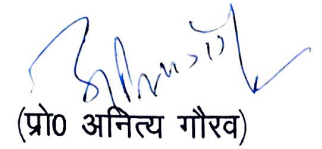 (प्रो0 अनित्य गौरव)